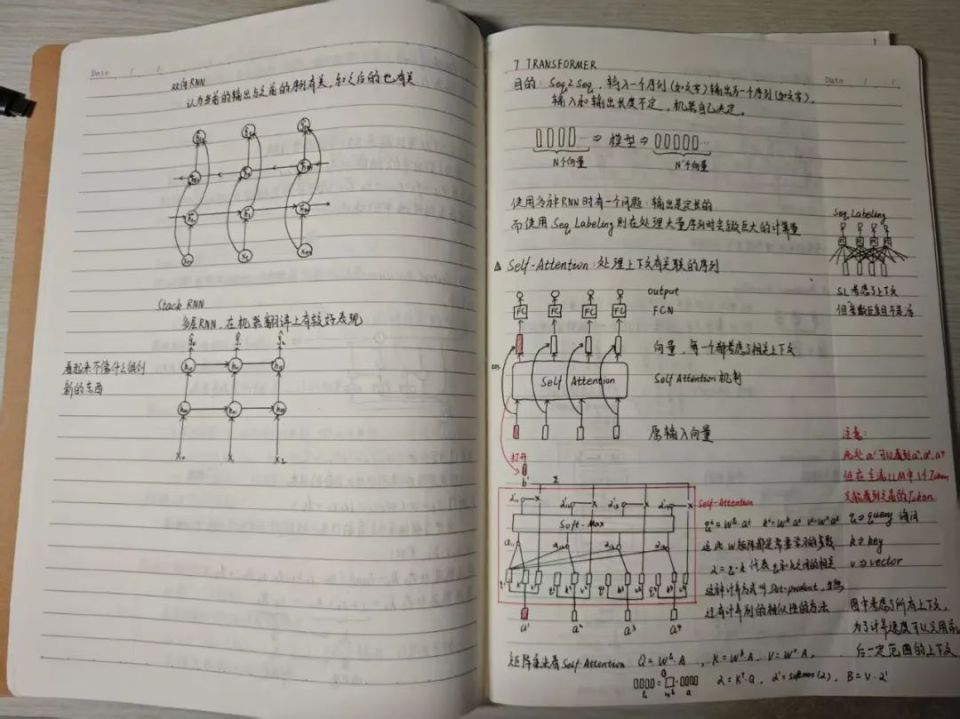 Date / /
双向RNN
认为当前的输出与之前的序列有关，和之后的也有关
Stack RNN
多层RNN，在机器翻译上有较好表现
看起来不像什么特别
新的东西
x₀ x₁ x₂
7 TRANSFORMER
Date / /
目的：Seq2Seq，输入一个序列(如文字)输出另一个序列(如文字)，
输入和输出长度不定，机器自己决定。
⇒ 模型 ⇒
N个向量 N'个向量
使用各种RNN时有一个问题：输出是定长的
而使用Seq Labeling则在处理大量序列时会有巨大的计算量
Seq Labeling
SL考虑了上下文
△ Self-Attention：处理上下文有关联的序列
output
FC FC FC FC FCN
向量，每一个都考虑了相关上下文
Self Attention Self Attention机制
原输入向量
打开
b¹
注意：
此处a¹可以看到a²,a³,a⁴
但在主流LLM中1个Token
只能看到之前的Token
Self-Attention
Soft-Max
qⁱ=W^q aⁱ kⁱ=W^k aⁱ vⁱ=W^v aⁱ
q⇒query 询问
这些W矩阵都是需要学习的参数
k⇒key
α=q·k 代表q和k之间的相关
v⇒vector
这种计算方式叫Dot-product，
还有计算别的相似性的方法
a¹ a² a³ a⁴
图中考虑了所有上下文，
为了计算速度可以只用前
后一定范围的上下文
矩阵乘法看Self-Attention Q=W^q·A，K=W^k·A，V=W^v·A，
α=Kᵀ·Q，α'=softmax(α)，B=V·α'